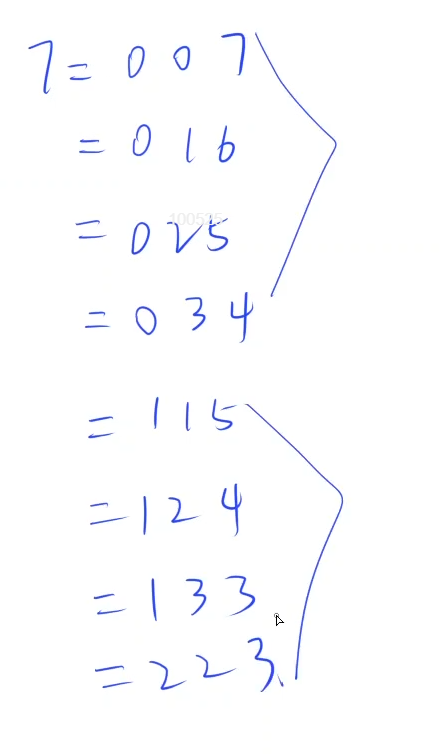 7 = 0 0 7
= 0 1 6
100525
= 0 2 5
= 0 3 4
= 1 1 5
= 1 2 4
= 1 3 3
= 2 2 3